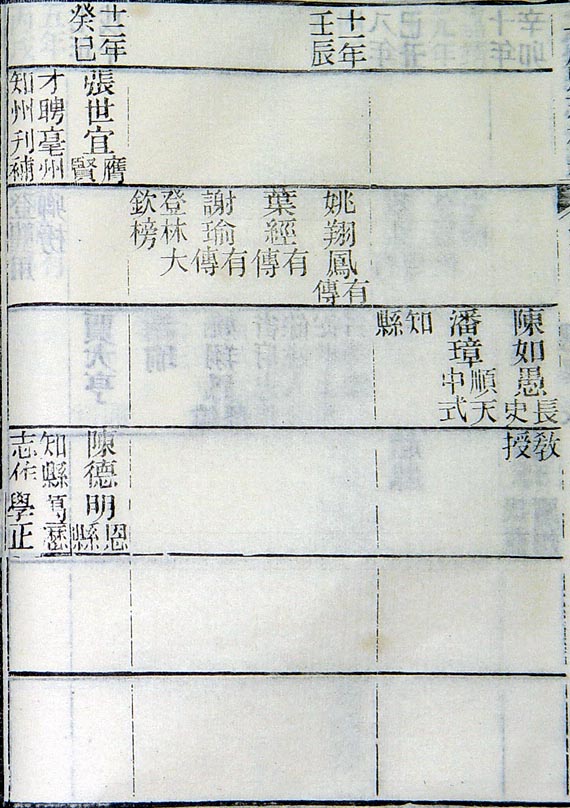 十一年
壬辰
十二年
癸巳
張世宜膺賢
才聘亳州
知州刋補
姚翔鳳有傳
葉經有傳
謝瑜有傳
登林大
欽榜
陳如愚長史
潘璋順天中式
知
縣
教
授
陳德明恩縣
知縣萬歷
志作學正